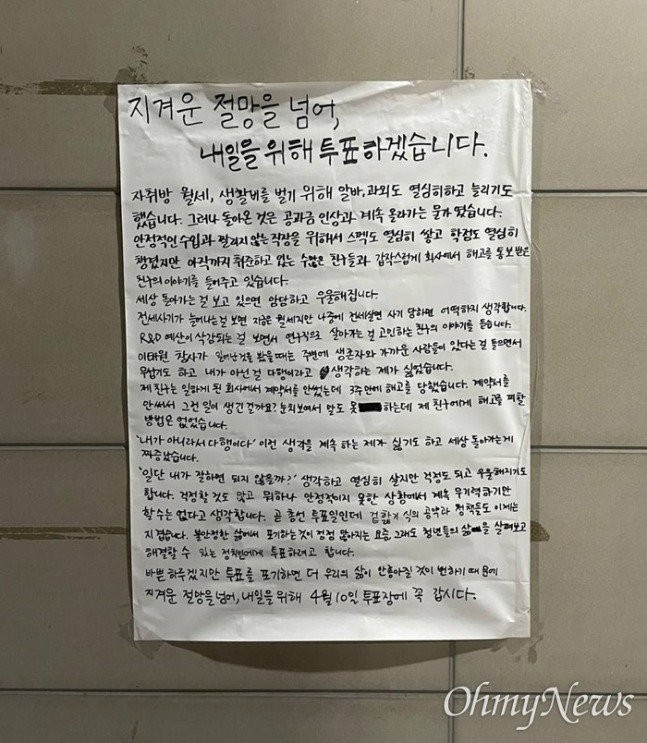 지겨운 절망을 넘어,
내일을 위해 투표하겠습니다.
자취방 월세, 생활비를 벌기 위해 알바, 과외도 열심히하고 늘리기도
했습니다. 그러나 돌아온 것은 공과금 인상과 계속 올라가는 물가 였습니다.
안정적인 수입과 잘리지 않는 직장을 위해서 스펙도 열심히 쌓고 학점도 열심히
챙겼지만 아직까지 취준하고 있는 수많은 친구들과 갑작스럽게 회사에서 해고를 통보받은
친구의 이야기를 들어주고 있습니다.
세상 돌아가는 걸 보고 있으면 암담하고 우울해집니다.
전세사기가 늘어나는 걸 보면 지금은 월세지만 나중에 전세살면 사기 당하면 어떡하지 생각합니다.
R&D 예산이 삭감되는 걸 보면서 연구직으로 살아가는 걸 고민하는 친구의 이야기를 듣습니다.
이태원 참사가 일어난것을 봤을때는 주변에 생존자와 가까운 사람들이 있다는 걸 들으면서
무섭기도 하고 내가 아닌 걸 다행이라고 생각하는 제가 싫었습니다.
제 친구는 일하게 된 회사에서 계약서를 안썼는데 3주만에 해고를 당했습니다. 계약서를
안써서 그런 일이 생긴 걸까요? 눈치보여서 말도 못 하는데 제 친구에게 해고를 피할
방법은 없었습니다.
'내가 아니라서 다행이다' 이런 생각을 계속 하는 제가 싫기도 하고 세상 돌아가는게
짜증났습니다.
'일단 내가 잘하면 되지 않을까?' 생각하고 열심히 살지만 걱정도 되고 우울해지기도
합니다. 걱정할 것도 많고 뭐하나 안정적이지 못한 상황에서 계속 무기력하기만
할수는 없다고 생각합니다. 곧 총선 투표일인데 겉핥기 식의 공약과 정책들도 이제는
지겹습니다. 불안정한 삶에서 포기하는것이 점점 많아지는 요즘, 그래도 청년들의 삶을 살펴보고
해결할 수 있는 정치인에게 투표하려고 합니다.
바쁜 하루겠지만 투표를 포기하면 더 우리의 삶이 안좋아질 것이 뻔하기 때문에
지겨운 절망을 넘어, 내일을 위해 4월 10일 투표장에 꼭 갑시다.
OhmyNews